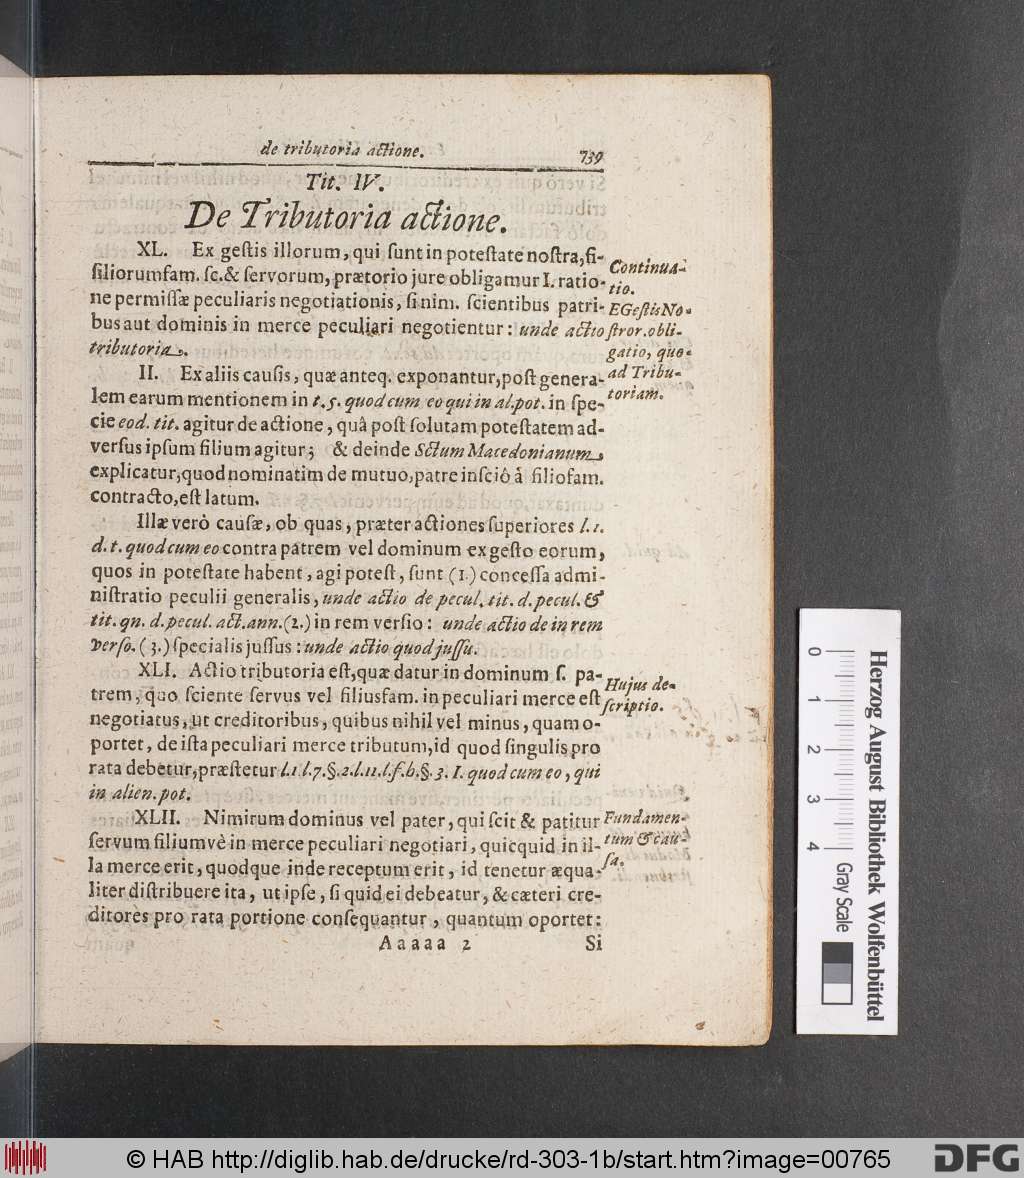 de tributoria actione. 739
Tit. IV.
De Tributoria actione.
XL. Ex gestis illorum, qui sunt in potestate nostra, fi-
filiorumfam. sc. & servorum, prætorio jure obligamur I. ratio-
ne permissæ peculiaris negotiationis, si nim. scientibus patri-
bus aut dominis in merce peculiari negotientur: unde actio
tributoria.
Continua-
tio.
EGestis No-
stror. obli-
gatio, quo-
ad Tribu-
toriam.
II. Ex aliis causis, quæ anteq. exponantur, post genera-
lem earum mentionem in t. 5. quod cum eo qui in al. pot. in spe-
cie eod. tit. agitur de actione, quâ post solutam potestatem ad-
versus ipsum filium agitur; & deinde Sctum Macedonianum,
explicatur, quod nominatim de mutuo, patre insciô â filiofam.
contracto, est latum.
Illæ verò causæ, ob quas, præter actiones superiores l. 1.
d. t. quod cum eo contra patrem vel dominum ex gesto eorum,
quos in potestate habent, agi potest, sunt (1.) concessa admi-
nistratio peculii generalis, unde actio de pecul. tit. d. pecul. &
tit. qn. d. pecul. act. ann. (2.) in rem versio: unde actio de in rem
verso. (3.) specialis jussus: unde actio quod jussu.
XLI. Actio tributoria est, quæ datur in dominum s. pa-
trem, quo sciente servus vel filiusfam. in peculiari merce est
negotiatus, ut creditoribus, quibus nihil vel minus, quam o-
portet, de ista peculiari merce tributum, id quod singulis pro
rata debetur, præstetur l. 1. l. 7. §. 2. l. 11. l. f. h. §. 3. I. quod cum eo, qui
in alien. pot.
Hujus de-
scriptio.
XLII. Nimirum dominus vel pater, qui scit & patitur
servum filiumvè in merce peculiari negotiari, quicquid in il-
la merce erit, quodque inde receptum erit, id tenetur æqua-
liter distribuere ita, ut ipse, si quid ei debeatur, & cæteri cre-
ditores pro rata portione consequantur, quantum oportet:
Fundamen-
tum & cau-
sa.
Aaaaa 2 Si
0 1 2 3 4
Herzog August Bibliothek Wolfenbüttel
Gray Scale
© HAB http://diglib.hab.de/drucke/rd-303-1b/start.htm?image=00765
DFG